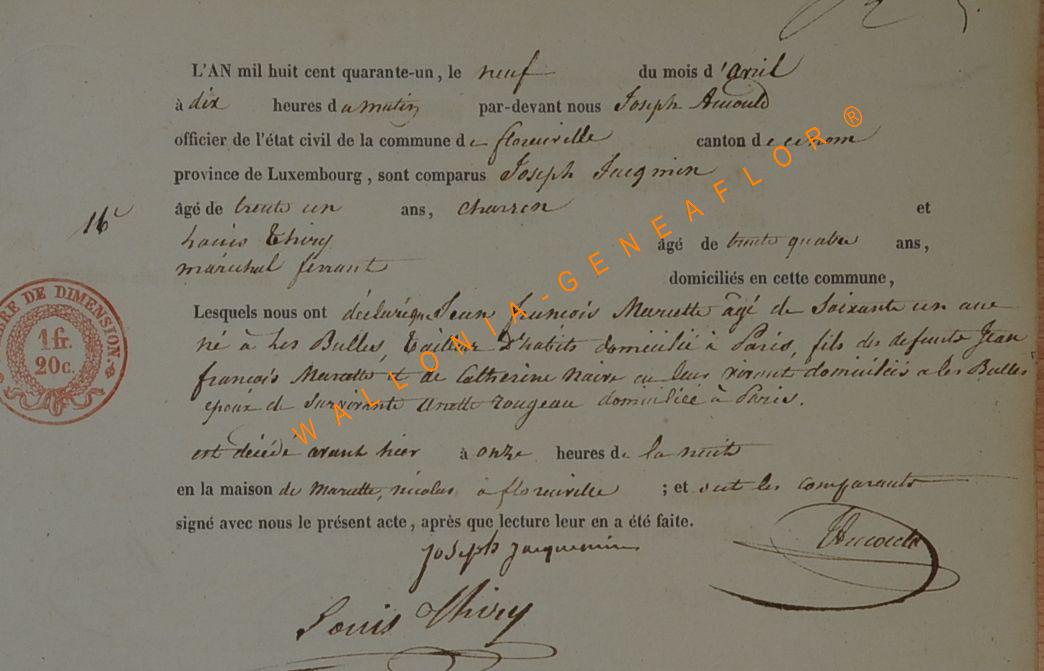 L'AN mil huit cent quarante-un, le neuf du mois d'avril
à dix heures du matin par-devant nous Joseph Arnould
officier de l'état civil de la commune de florenville canton de ce nom
province de Luxembourg, sont comparus Joseph Jacqmin
16e
âgé de trente un ans, charron et
Louis Thiry âgé de trente quatre ans,
maréchal ferrant domiciliés en cette commune,
TIMBRE DE DIMENSION
1 fr.
20 c.
Lesquels nous ont déclaré que Jean François Marette âgé de soixante un ans
né à Les Bulles, tailleur d'habits domicilié à Paris, fils des defunts Jean
françois Marette et de Catherine en leur vivant domiciliés a les Bulles
époux de survivante anette rougeau domiciliée à Paris.
est décédé avant hier à onze heures de la nuit
en la maison de Marette, nicolas à florenville ; et ont les comparants
signé avec nous le présent acte, après que lecture leur en a été faite.
Joseph Jacquemin
Arnould
Louis Thiry
WALLONIA-GENEAFLOR ®